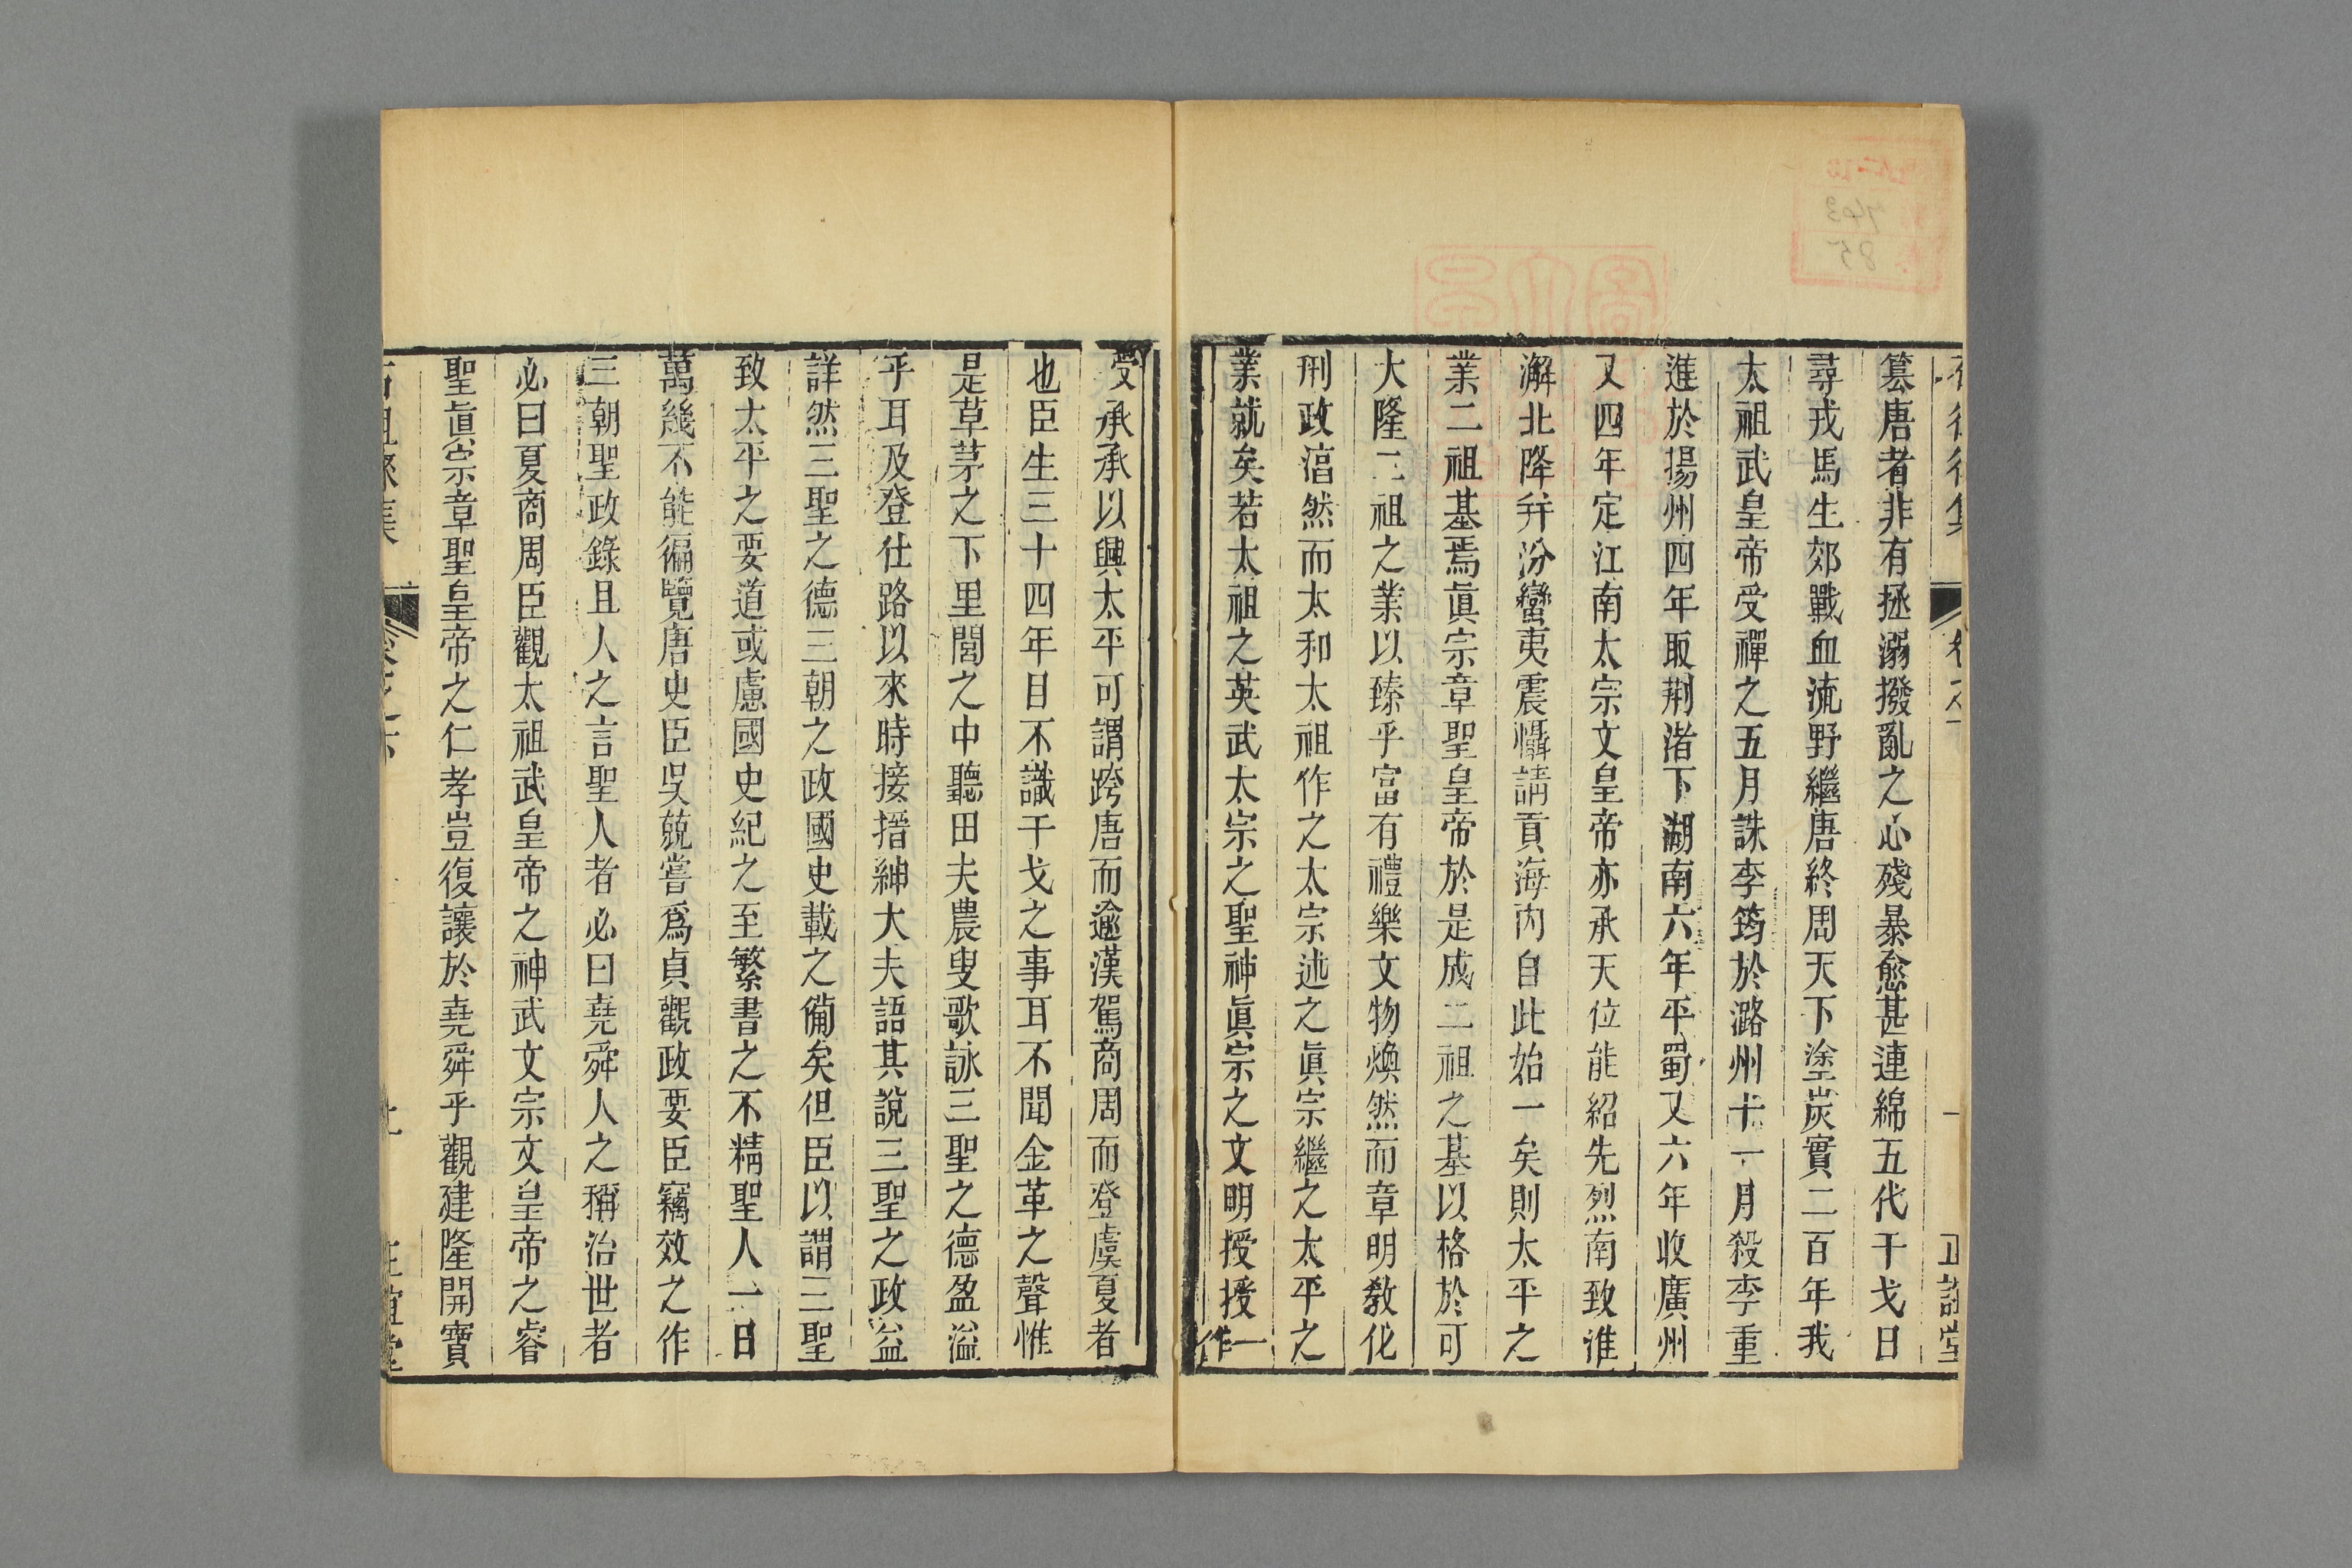 篡唐者非有拯溺撥亂之心殘暴愈甚連綿五代干戈日
尋戎馬生郊戰血流野繼唐終周天下塗炭實二百年我
太祖武皇帝受禪之五月誅李筠於潞州十一月殺李重
進於揚州四年取荆渚下湖南六年平蜀又六年收廣州
又四年定江南太宗文皇帝亦承天位能紹先烈南致淮
澥北降幷汾蠻夷震懾請貢海內自此始一矣則太平之
業二祖基焉眞宗章聖皇帝於是成二祖之基以格於可
大隆二祖之業以臻乎富有禮樂文物煥然而章明敎化
刑政㴠然而太和太祖作之太宗述之眞宗繼之太平之
業就矣若太祖之英武太宗之聖神眞宗之文明授授一
作
受承承以興太平可謂跨唐而逾漢駕商周而登虞夏者
也臣生三十四年日不識干戈之事耳不聞金革之聲惟
是草茅之下里閭之中聽田夫農叟歌詠三聖之德盈溢
乎耳及登仕路以來時接搢紳大夫語其說三聖之政益
詳然三聖之德三朝之政國史載之備矣但臣以謂三聖
致太平之要道或慮國史紀之至繁書之不精聖人一日
萬幾不能徧覽唐史臣吳兢嘗爲貞觀政要臣竊效之作
三朝聖政錄且人之言聖人者必曰堯舜人之稱治世者
必曰夏商周臣觀太祖武皇帝之神武文宗文皇帝之睿
聖眞宗章聖皇帝之仁孝豈復讓於堯舜乎觀建隆開寶